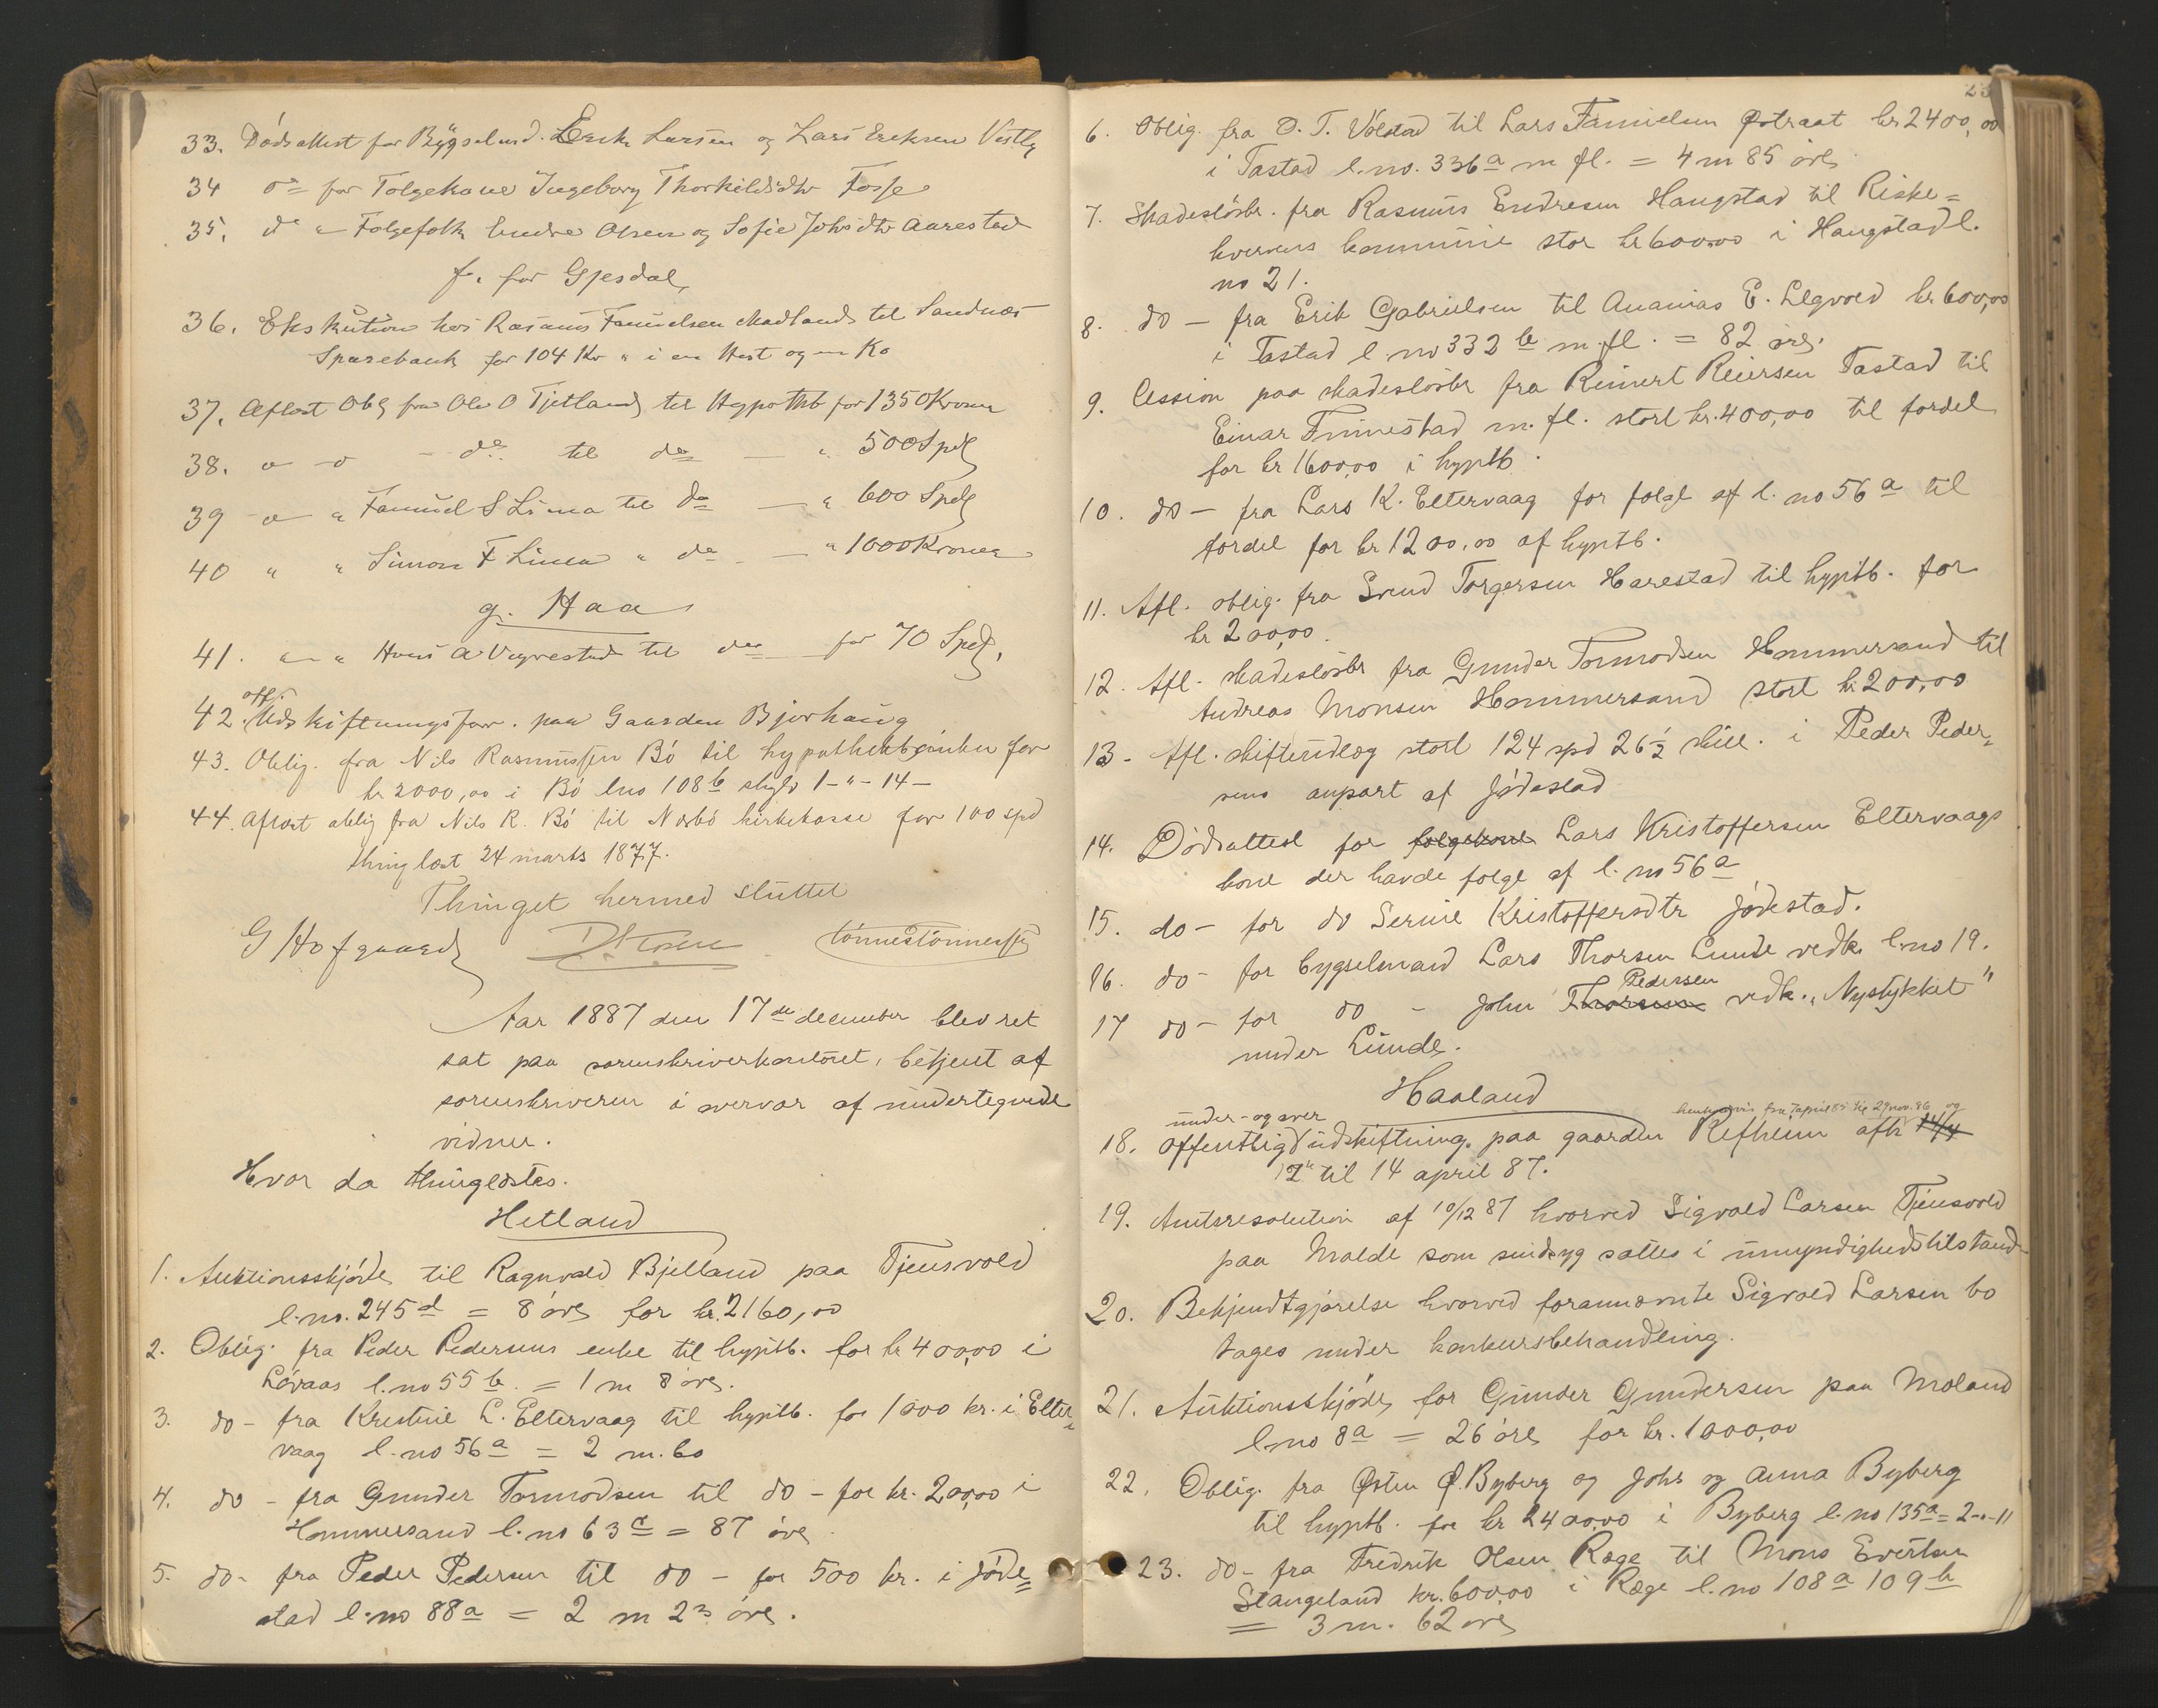 33. Dödsattest for Bygselmd. Erik Larsen og Lars Eriksen Vestly
34 do for Folgekone Ingeborg Thorkildsdtr Fosse
35. do " Folgefolk Endre Olsen og Sofie Johsdtr Aarestad
f. for Gjesdal
36. Eksekution hos Rasmus Samuelsen Madland til Sandnæs
Sparebank for 104 Kr " i en Hest og en Ko
37. Aflæst Obl fra Ole O Tjetland til Hypothb for 1350 Kroner
38. " " - do til do — " 500 Spd
39 " " Samuel S Lima til do — " 600 Spd
40 " " Simon S Lima " do — " 1000 Kroner
g. Haa
41. " " Hans A Vigrestad til do for 70 Spd.
42. off. Udskiftningsfor. paa Gaarden Bjorhaug
43. Oblig. fra Nils Rasmussen Bö til hypothekbanken for
kr 2000,00 i Bö lno 108 b skyld 1-"-14-
44. Aflæst oblig fra Nils R. Bö til Nærbö kirkekasse for 100 spd
thinglæst 24 marts 1877.
Thinget hermed sluttet
G Hofgaard Tönnes Tönnessen
Aar 1887 den 17de december blev ret
sat paa sorenskriverkontoret, betjent af
sorenskriveren i overvær af undertegnede
vidner.
Hvor da thinglæstes.
Hetland
1. Auktionsskjöde til Ragnvald Bjelland paa Tjensvold
l.no. 245 d = 8 öre for kr. 2160,00
2. Oblig. fra Peder Pedersens enke til hyptb. for kr 400,00 i
Lövaas l.no 55 b. = 1 m 8 öre.
3. do - fra Kristine L. Eltervaag til hyptb. for 1000 kr. i Elter-
vaag l.no 56 a = 2 m. 60
4. do - fra Gunder Tormodsen til do - for kr. 200,00 i
Hommersand l.no 63 c = 87 öre
5. do - fra Peder Pedersen til do - for 500 kr. i Jöde=
stad l.no 88 a = 2 m 23 öre.
6. Oblig. fra O. T. Volstad til Lars Samuelsen Östraat kr 2400,00
i Tastad l.no. 336 a m fl. = 4 m 85 öre
7. Skadeslösbr. fra Rasmus Endresen Haugstad til Riske=
kverns kommune stor kr 600,00 i Haugstad l.
no 21.
8. do - fra Erik Gabrielsen til Ananias E. kr. 600,00
i Tastad l.no 332 b m.fl. = 82 öre.
9. Cession paa skadeslösbr fra Reinert Reiersen Tastad til
Einar Finnestad m. fl. stort kr. 400,00 til fordel
for kr 1600,00 i hyptb.
10. do - fra Lars K. Eltervaag for folge af l.no 56 a til
fordel for kr 1200,00 af hyptb.
11. Afl. oblig. fra Svend Torgersen Harestad til hyptb. for
kr 200,00.
12. Afl. skadeslösbr fra Gunder Tormodsen Hommersand til
Andreas Monsen Hommersand stort kr 200,00
13. Afl. skifteudlæg stort 124 spd 26 1/2 skill. i Peder Peder-
sens anpart af Jödestad
14. Dödsattest for folgekone Lars Kristoffersen Eltervaags
kone der havde folge af l.no 56 a
15. do - for do Serine Kristoffersdtr Jödestad.
16. do - for bygselmand Lars Thorsen Lunde vedk. l.no 19.
17 do - for do - John Thorsen Pedersen vedk. "Nystykket"
under Lunde.
Haaland
henholdsvis fra 7 april 85 til 29 nov. 86 og
18. Offentlig under- og over udskiftning paa gaarden Refheim afh 14/4
12 til 14 april 87.
19. Amtsresolution af 10/12 87 hvorved Sigvald Larsen Tjensvold
paa Malde som sindsyg sættes i umyndighedstilstand
20. Bekjendtgjörelse hvorved forannævnte Sigvald Larsen bo
tages under konkursbehandling.
21. Auktionsskjöde for Gunder Gundersen paa Moland
l.no 8 a = 26 öre for kr. 1000,00
22. Oblig. fra Östen Ø. Byberg og Johs og Anna Byberg
til hyptb. for kr 2400,00 i Byberg l.no 135 a = 2-"-11
23. do - fra Fredrik Olsen Ræge til Mons Evertsen
Stangeland kr. 600,00 i Ræge l.no 108 a 109 b
= 3 m. 62 öre